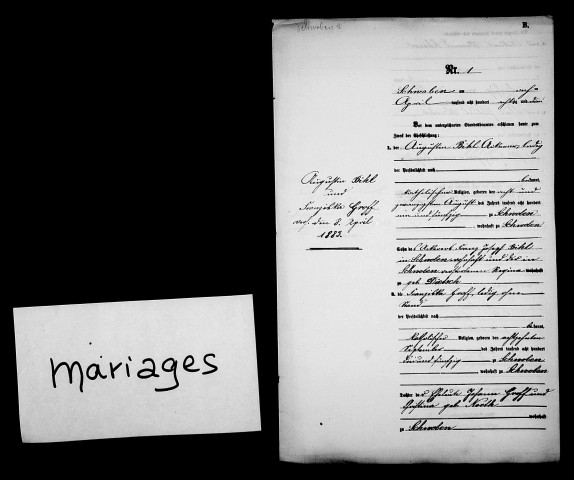 B.
Nr. 1
Schwoben am acht
April tausend acht hundert achtzig und drei
Vor dem unterzeichneten Standesbeamten erschienen heute zum
Zweck der Eheschließung:
1. der Augustin Bihl Ackerer, ledig
der Persönlichkeit nach
kannt,
katholischer Religion, geboren den acht und
zwanzigsten August des Jahres tausend acht hundert
fünfzig zu Schwoben
wohnhaft zu Schwoben
Sohn des Ackerers Franz Joseph Bihl
in Schwoben wohnhaft und der in
Schwoben verstorbenen Regina wohnhaft
zu geb. Dietsch
2. die Franziska Groff, ledig ohne
Stand
der Persönlichkeit nach
kannt,
katholischer Religion, geboren den achtzehnten
September des Jahres tausend acht hundert
fünfzig zu Schwoben
wohnhaft zu Schwoben
Tochter der Eheleute Johann Groff und
Christina geb.
wohnhaft
zu Schwoben
Augustin Bihl
und
Franziska Groff
den 8. April
1883.
mariages